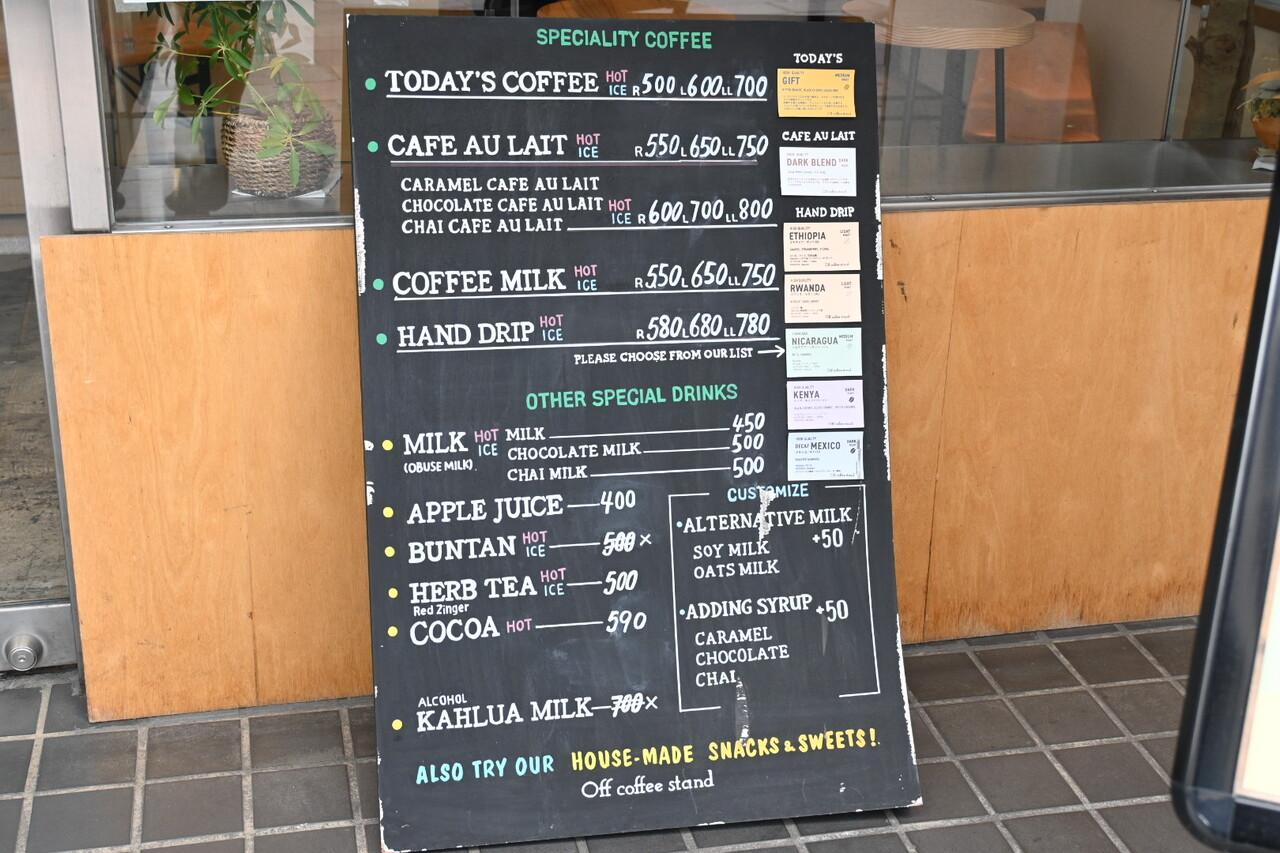 SPECIALITY COFFEE
TODAY'S COFFEE HOT ICE R500 L600 LL700
CAFE AU LAIT HOT ICE R550 L650 LL750
CARAMEL CAFE AU LAIT
CHOCOLATE CAFE AU LAIT HOT ICE R600 L700 LL800
CHAI CAFE AU LAIT
COFFEE MILK HOT ICE R550 L650 LL750
HAND DRIP HOT ICE R580 L680 LL780
PLEASE CHOOSE FROM OUR LIST →
TODAY'S
GIFT
CAFE AU LAIT
DARK BLEND DARK
HAND DRIP
ETHIOPIA LIGHT
RWANDA LIGHT
NICARAGUA MEDIUM
KENYA DARK
DECAF MEXICO DARK
OTHER SPECIAL DRINKS
MILK HOT ICE
(OBUSE MILK)
MILK 450
CHOCOLATE MILK 500
CHAI MILK 500
APPLE JUICE 400
BUNTAN HOT ICE 500 ×
HERB TEA HOT ICE 500
Red Zinger
COCOA HOT 590
ALCOHOL
KAHLUA MILK 700 ×
CUSTOMIZE
•ALTERNATIVE MILK
+50
SOY MILK
OATS MILK
•ADDING SYRUP +50
CARAMEL
CHOCOLATE
CHAI
ALSO TRY OUR HOUSE-MADE SNACKS & SWEETS!
Off coffee stand